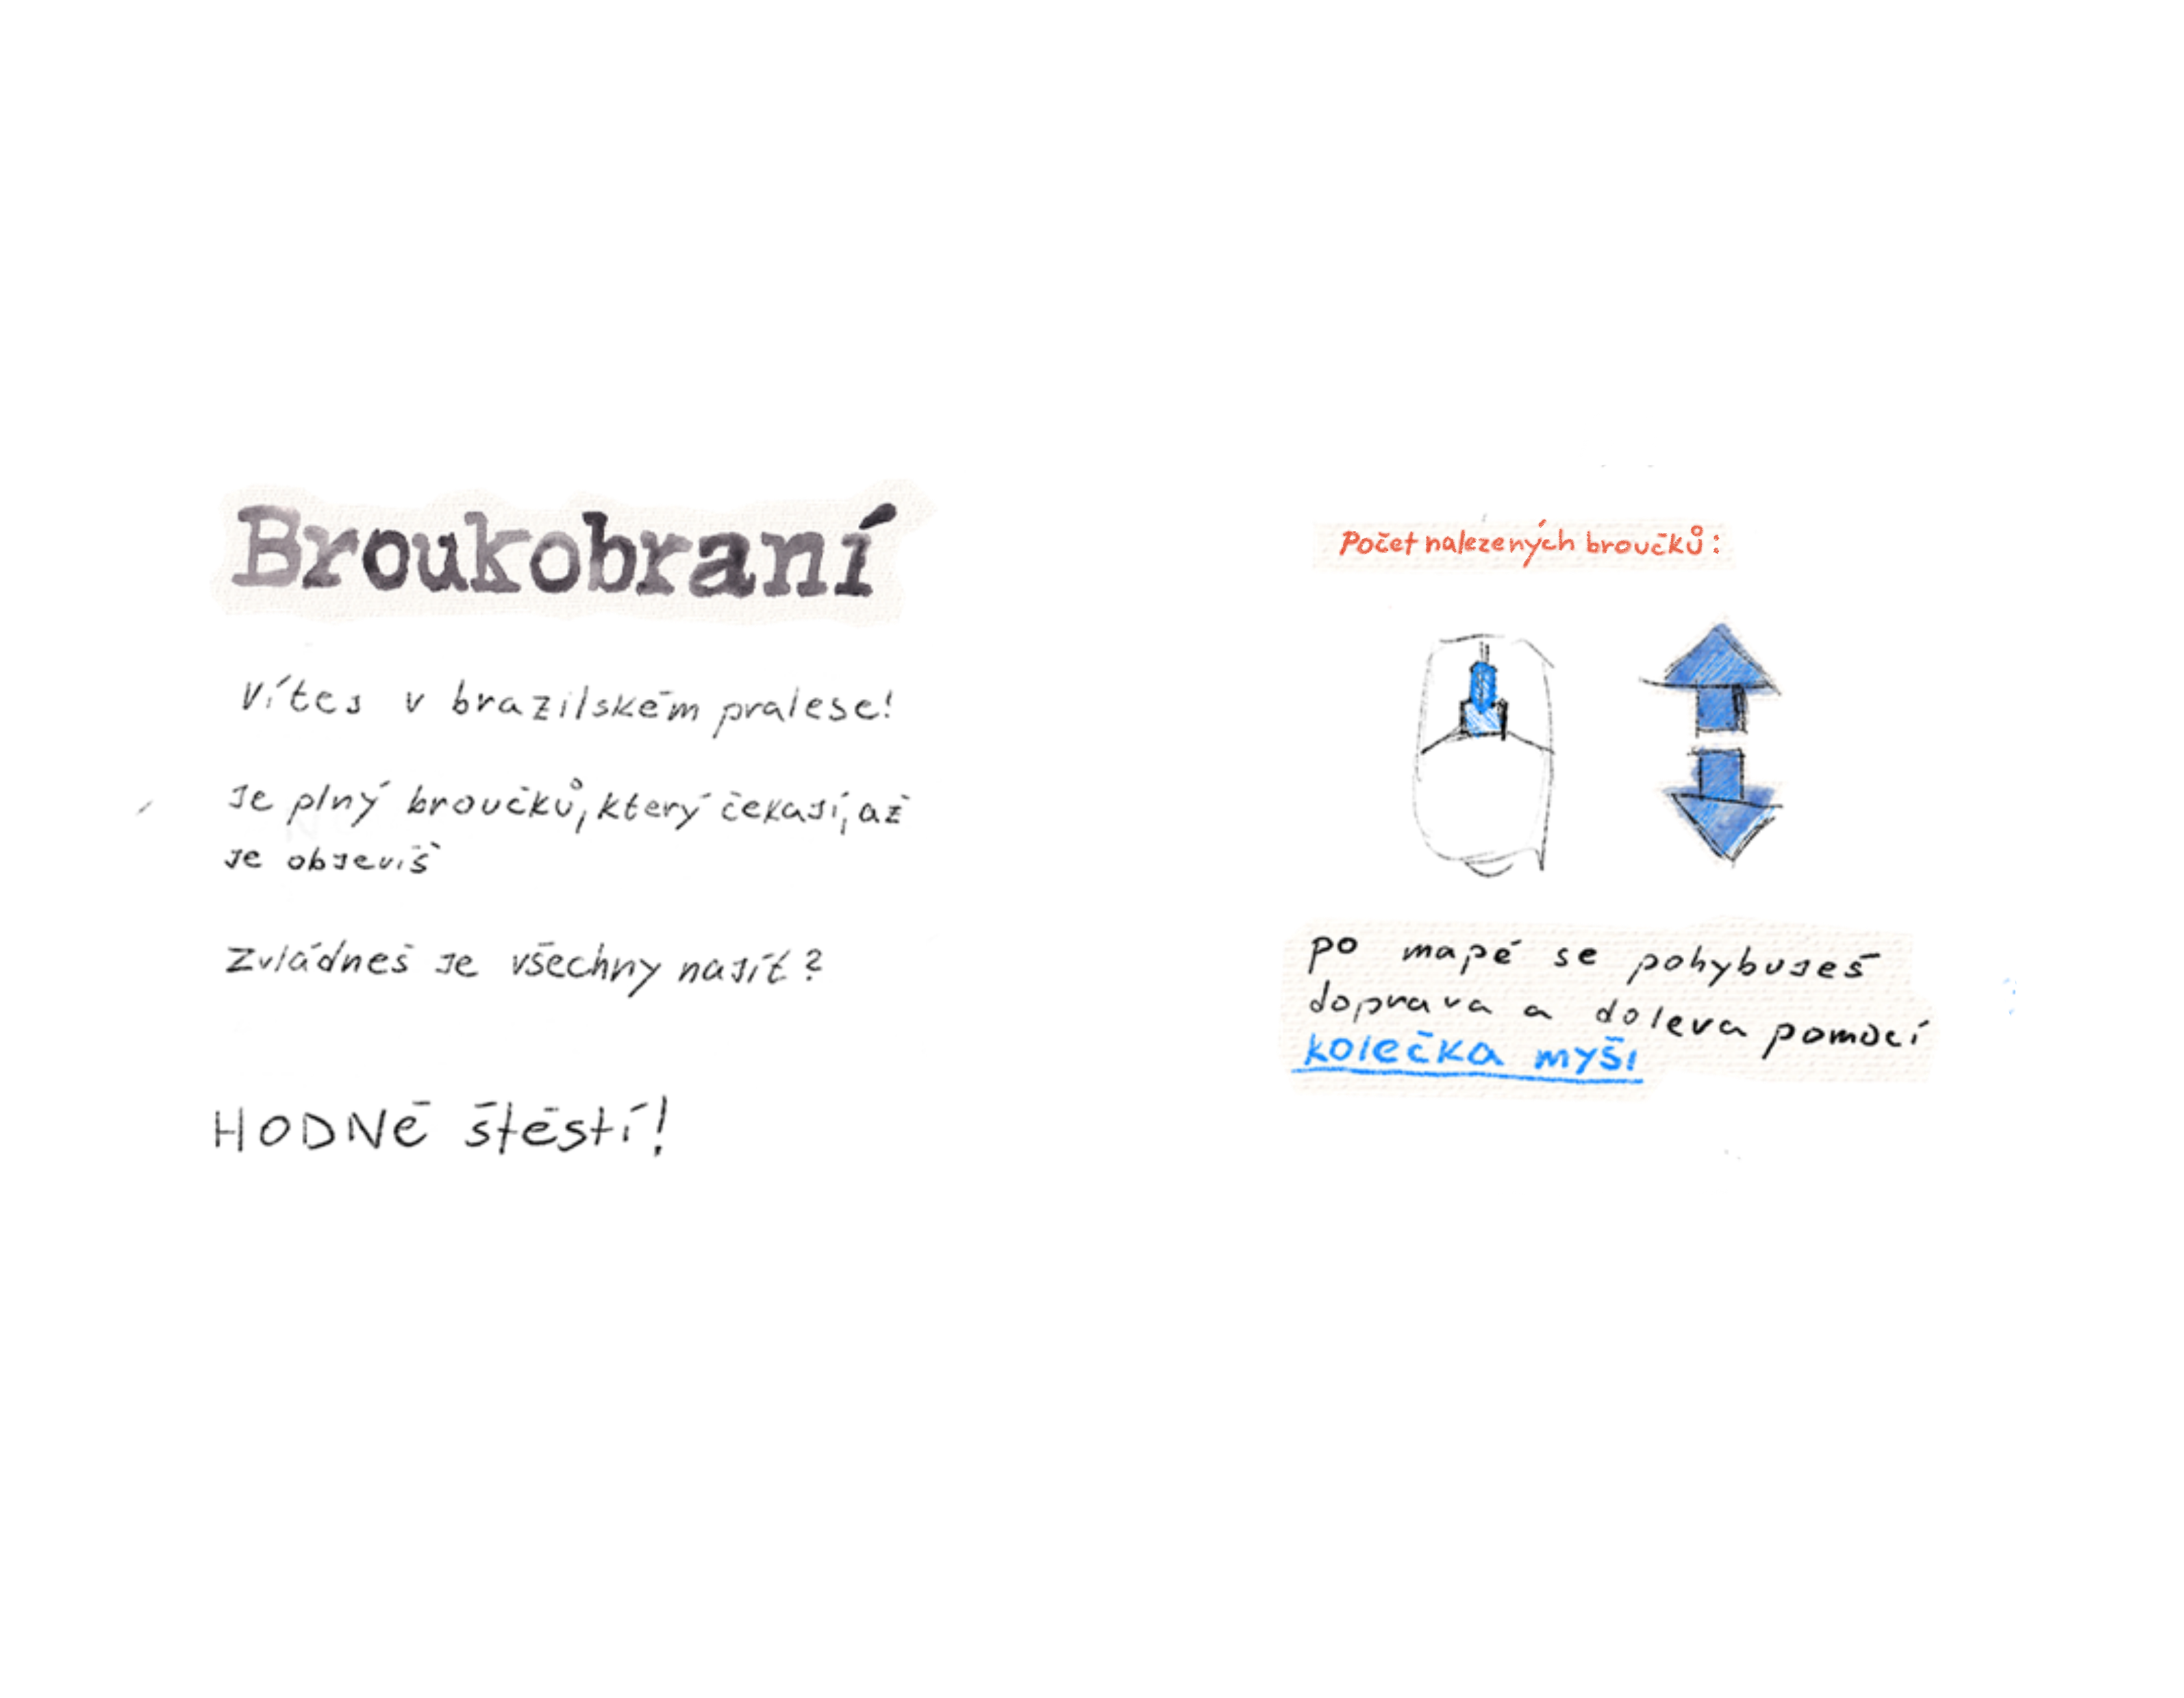 Broukobraní
Vítej v brazilském pralese!
Je plný broučků, který čekají, až
je objevíš
Zvládneš je všechny najít?
HODNĚ štěstí!
Počet nalezených broučků:
po mapě se pohybuješ
doprava a doleva pomocí
kolečka myši